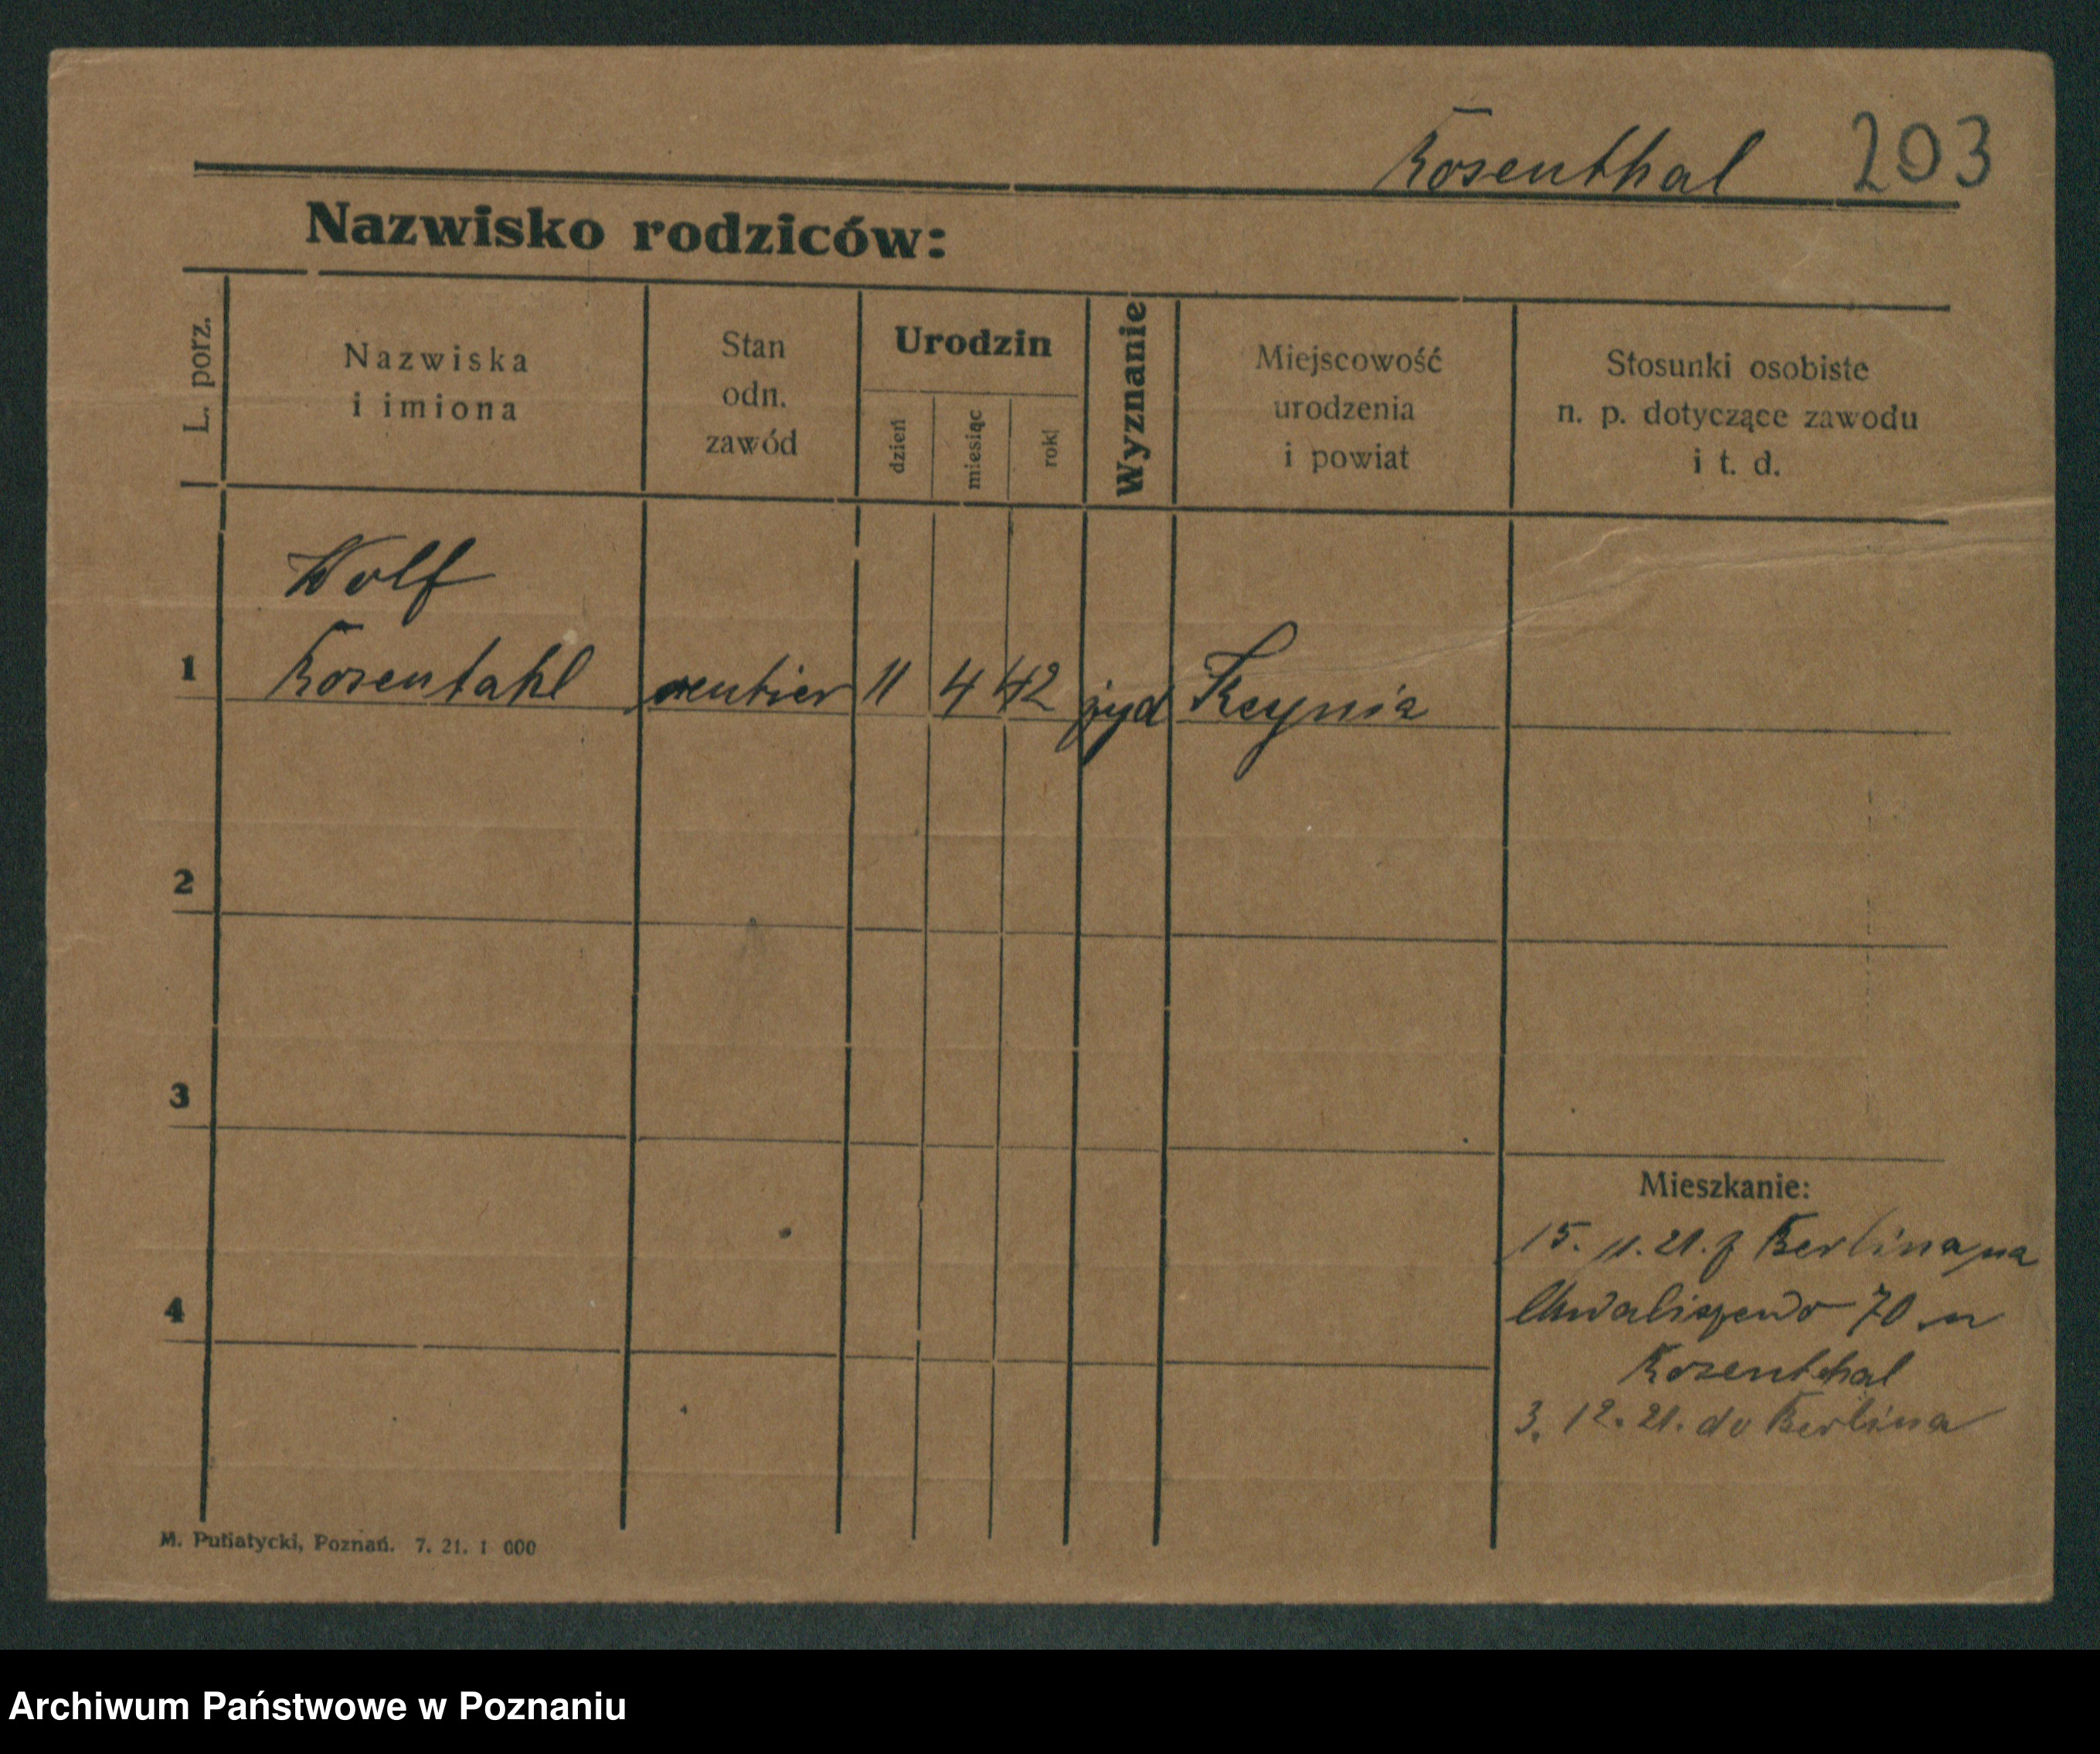 Rosenthal 203
Nazwisko rodziców:
L. porz.
Nazwiska
i imiona
Stan
odn.
zawód
Urodzin
dzień
miesiąc
rok
Wyznanie
Miejscowość
urodzenia
i powiat
Stosunki osobiste
n. p. dotyczące zawodu
i t. d.
Wolf
1 Rosentahl rentier 11 4 42 żyd Kcynia
2
3
Mieszkanie:
15. 11. 21. z Berlina na
Chwaliszewo 70 u
4
Rosenthal
3. 12. 21. do Berlina
M. Putiatycki, Poznań. 7. 21. 1 000
Archiwum Państwowe w Poznaniu